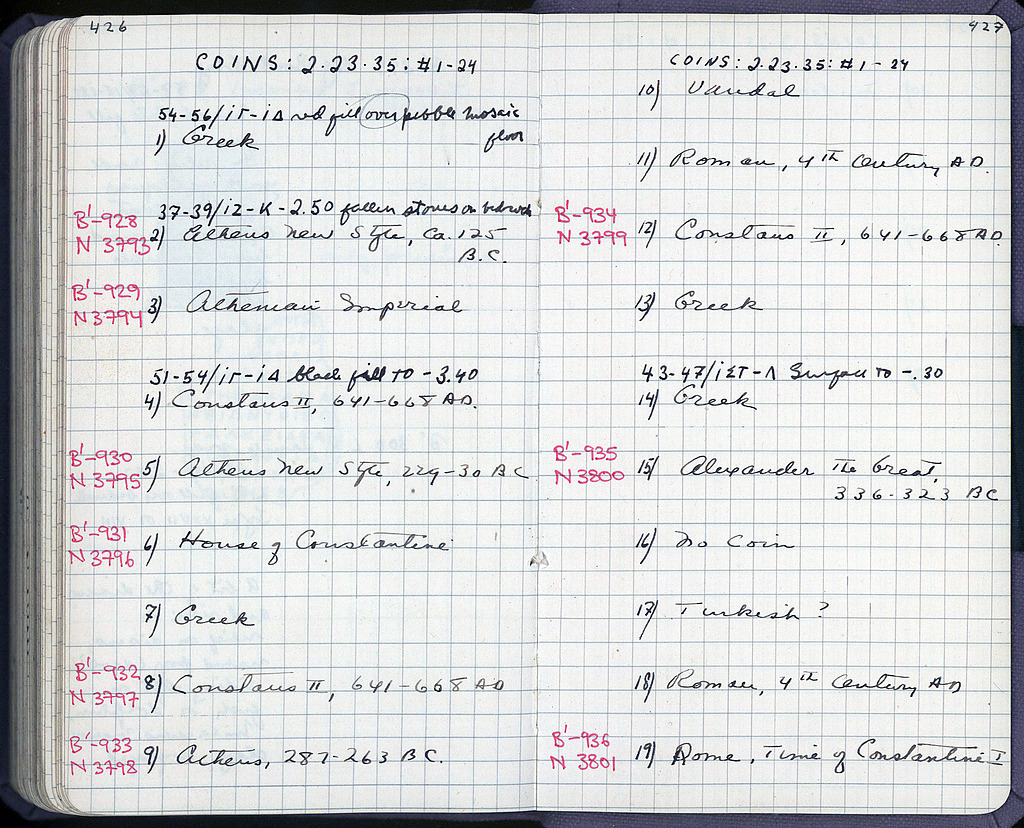 426
COINS: 2.23.35: #1-24
54-56/ιΓ-ιΔ red fill over pebble mosaic
1) Greek floor
37-39/ιΖ-Κ -2.50 fallen stones on bedrock
B'-928
N 3793 2) Athens New Style, Ca. 125
B.C.
B'-929
N 3794 3) Athenian Imperial
51-54/ιΓ-ιΔ black fill to -3.40
4) Constans II, 641-668 AD.
B'-930
N 3795 5) Athens New Style, 229-30 BC
B'-931
N 3796 6) House of Constantine
7) Greek
B'-932
N 3797 8) Constans II, 641-668 AD
B'-933
N 3798 9) Athens, 287-263 BC.
427
COINS: 2.23.35: #1-24
10) Vandal
11) Roman, 4th Century AD.
B'-934
N 3799 12) Constans II, 641-668 AD.
13) Greek
43-47/ιΣΤ-Λ Surface to -.30
14) Greek
B'-935
N 3800 15) Alexander the Great,
336-323 BC
16) No coin
17) Turkish?
18) Roman, 4th Century AD
B'-936
N 3801 19) Rome, Time of Constantine I